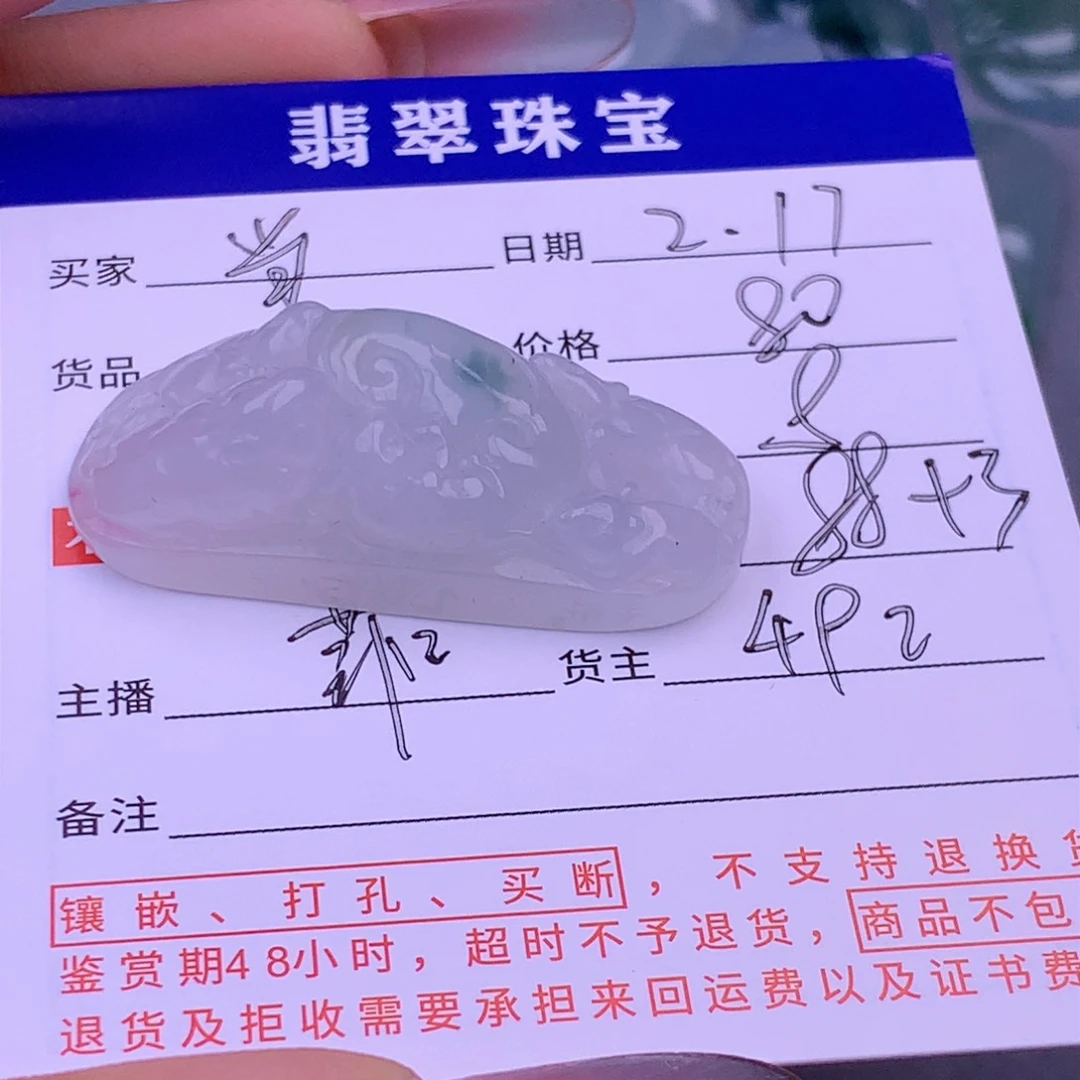 翡翠珠宝
买家 日期 2.17
货品 价格 80
88+3
主播 货主 4P2
备注
镶嵌、打孔、买断，不支持退换
鉴赏期48小时，超时不予退货，商品不包
退货及拒收需要承担来回运费以及证书费